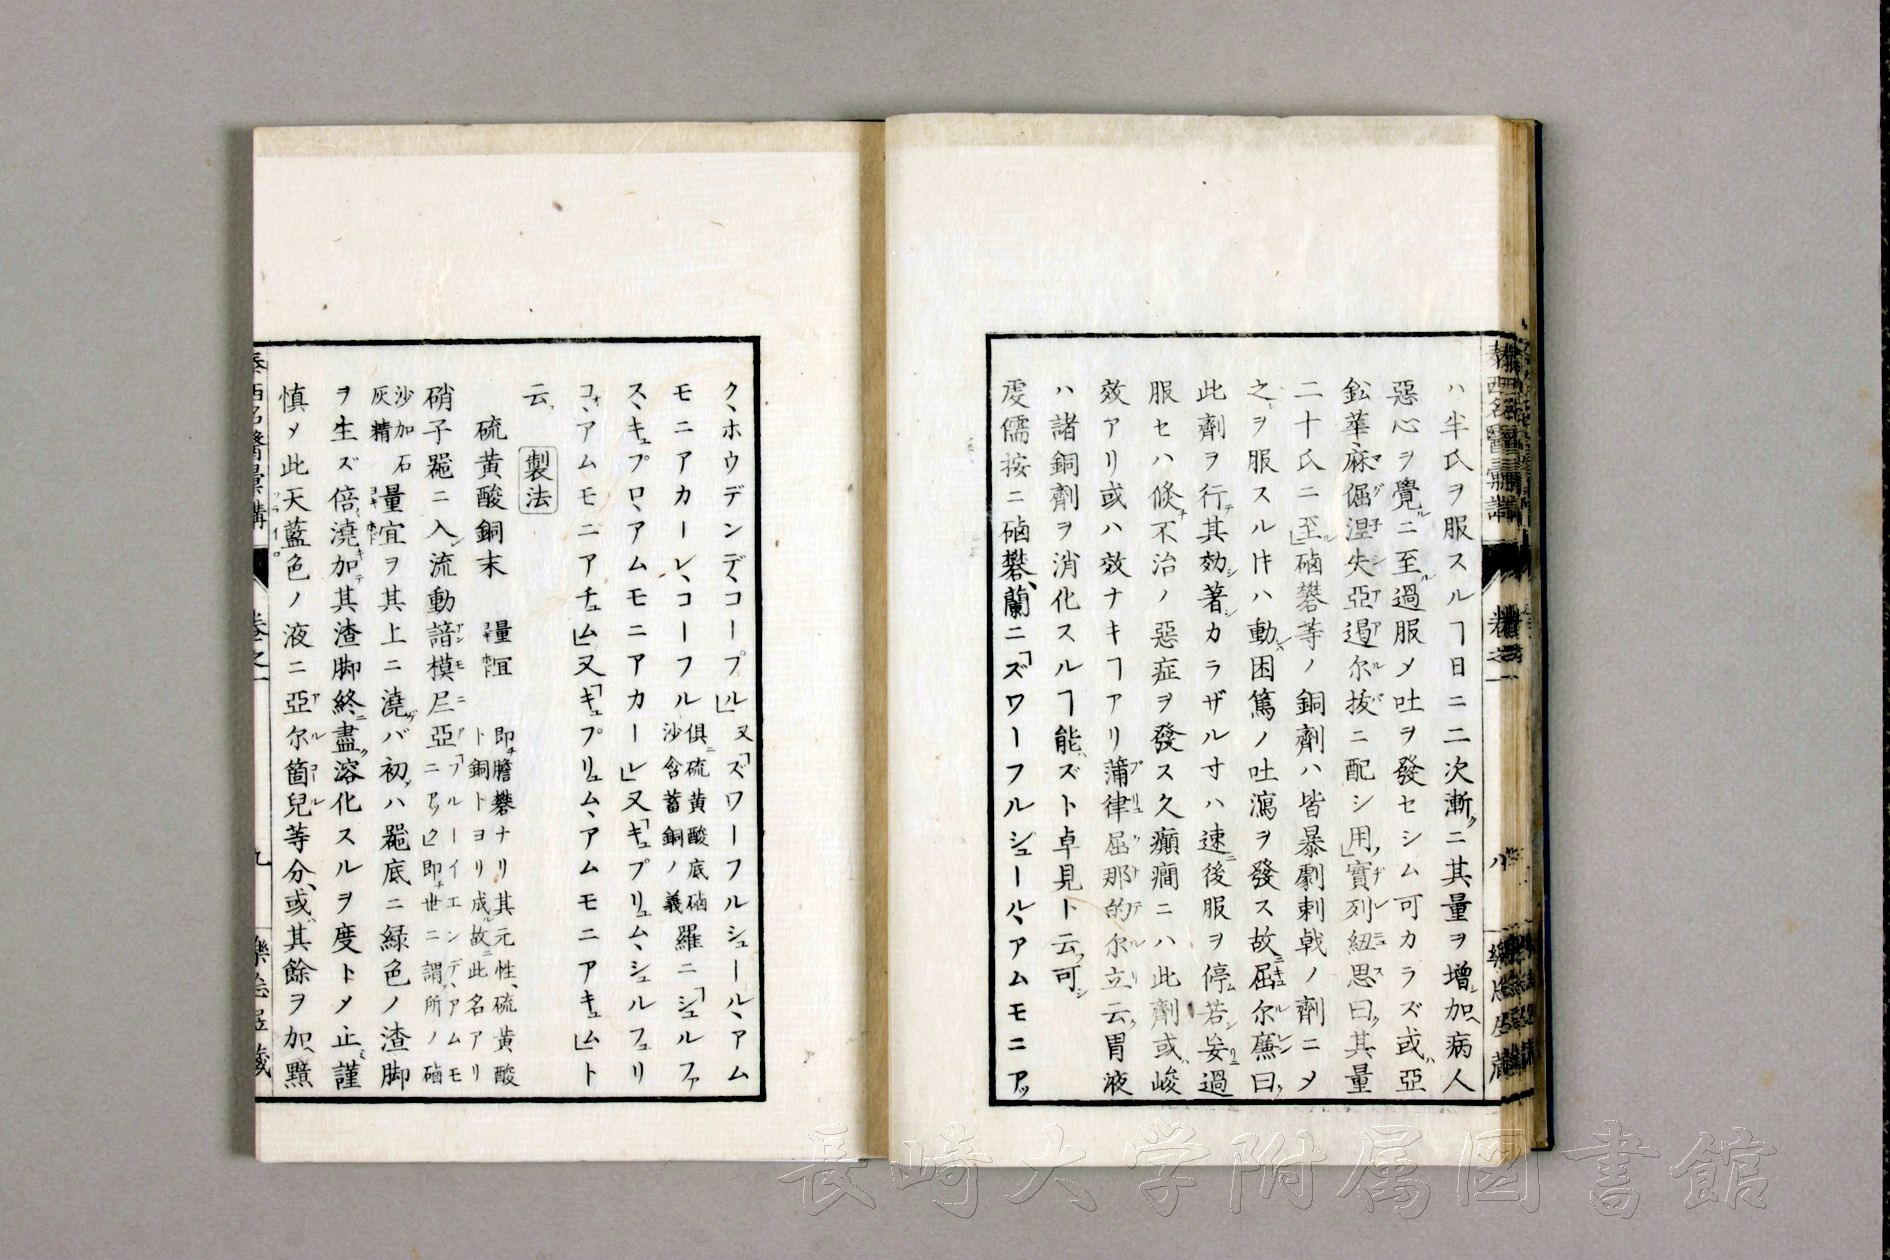 ハ半氏ヲ服スルヿ日ニ二次漸ニ其量ヲ增加病人
惡心ヲ覺ニ至過服メ吐ヲ發セシム可カラズ或亞
鈆華麻倔涅失亞遏尔拔ニ配シ用實列紐思曰其量
二十氏ニ至硇礬等ノ銅劑ハ皆暴劇刺戟ノ劑ニメ
之ヲ服スル㐧ハ動困篤ノ吐瀉ヲ發ス故屈尔廉曰
此劑ヲ行其効著カラザル寸ハ速後服ヲ停若妄過
服セハ倏不治ノ惡症ヲ發ス久癲癇ニハ此劑或峻
效アリ或ハ效ナキヿアリ蒲律屈那的尔立云胃液
ハ諸銅劑ヲ消化スルヿ能ズト卓見ト云可
虔儒按ニ硇礬、蘭ニ「ズワーフルジュール、アムモニアッ
ク、ホウデンデ、コープル」又「ズワーフルシュール、アム
モニアカーレ、コーフル俱硫黄酸底硇沙含蓄銅ノ義羅ニ「シュルファ
ス、キュプロ、アムモニアカーレ」又「キュプリュム、シュルフュリ
コ、アムモニアチュム」又「キュプリュム、アムモニアキュム」ト
云
製法
硫黄酸銅末 量宜 即膽礬ナリ其元性、硫黄酸
ト銅トヨリ成故此名アリ
硝子噐ニ入流動諳模尼亞「フルーイエンデ、アムモ
ニアッ」即世ニ謂所ノ硇
沙加石
灰精量宜ヲ其上ニ澆バ初ハ噐底ニ緑色ノ渣脚
ヲ生ズ倍澆加其渣脚終盡溶化スルヲ度トメ止謹
慎メ此天藍色ノ液ニ亞尔箇兒等分、或其餘ヲ加黙
泰西名醫彙講
卷之一
八
九
長崎大学附属図書館